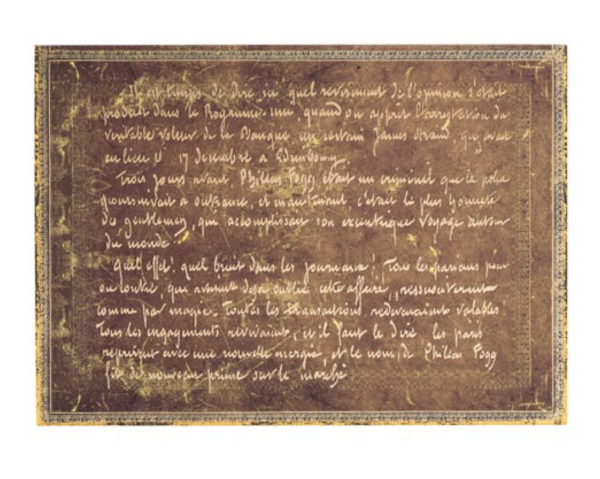 Il est temps de dire ici quel revirement de l'opinion s'était
produit dans le Royaume-uni quand on apprit l'arrestation du
véritable voleur de la Banque un certain James Strand, qui avait
eu lieu le 17 Décembre à Edimbourg
Trois jours avant, Phileas Fogg était un criminel que la police
poursuivait à outrance, et maintenant, c'était le plus honnête
de gentlemen, qui accomplissait son excentrique voyage autour
du monde.
Quel effet, quel bruit dans les journaux! Tous les parieurs pour
ou contre, qui avaient déjà oublié cette affaire, ressuscitèrent
comme par magie. Toutes les transactions redevenaient valables.
Tous les engagements revivaient, et il faut le dire, les paris
reprirent avec une nouvelle énergie, et le nom de Phileas Fogg
fit de nouveau prime sur le marché